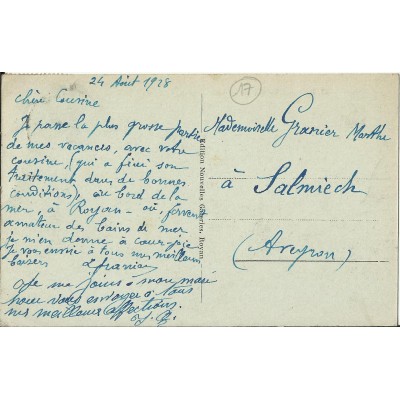 24 Août 1928
17
Chère Cousine
Je passe la plus grosse partie
de mes vacances, avec votre
cousine, (qui a fini son
traitement dans de bonnes
conditions), au bord de la
mer, à Royan - où, fervent
amateur des bains de mer
je m'en donne à cœur-joie
Je vous envoie à tous mes meilleurs
baisers
Je me joins à mon mari
pour vous envoyer à tous
mes meilleures affections.
Edition Nouvelles Galeries, Royan
Mademoiselle Granier Marthe
à
Salmiech
(Aveyron)